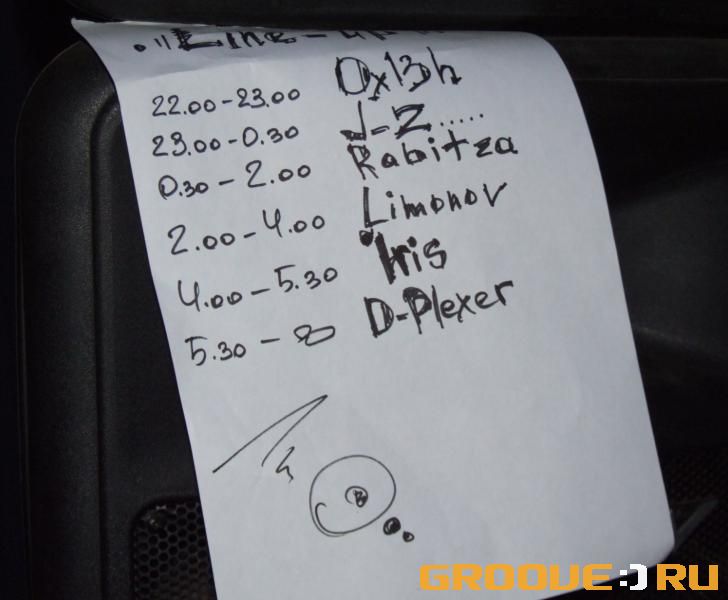 "Line-up
22.00-23.00 0x13h
23.00-0.30 J-Z......
0.30-2.00 Rabitza
2.00-4.00 Limonov
4.00-5.30 Iris
5.30-∞ D-Plexer
GROOVE:) RU